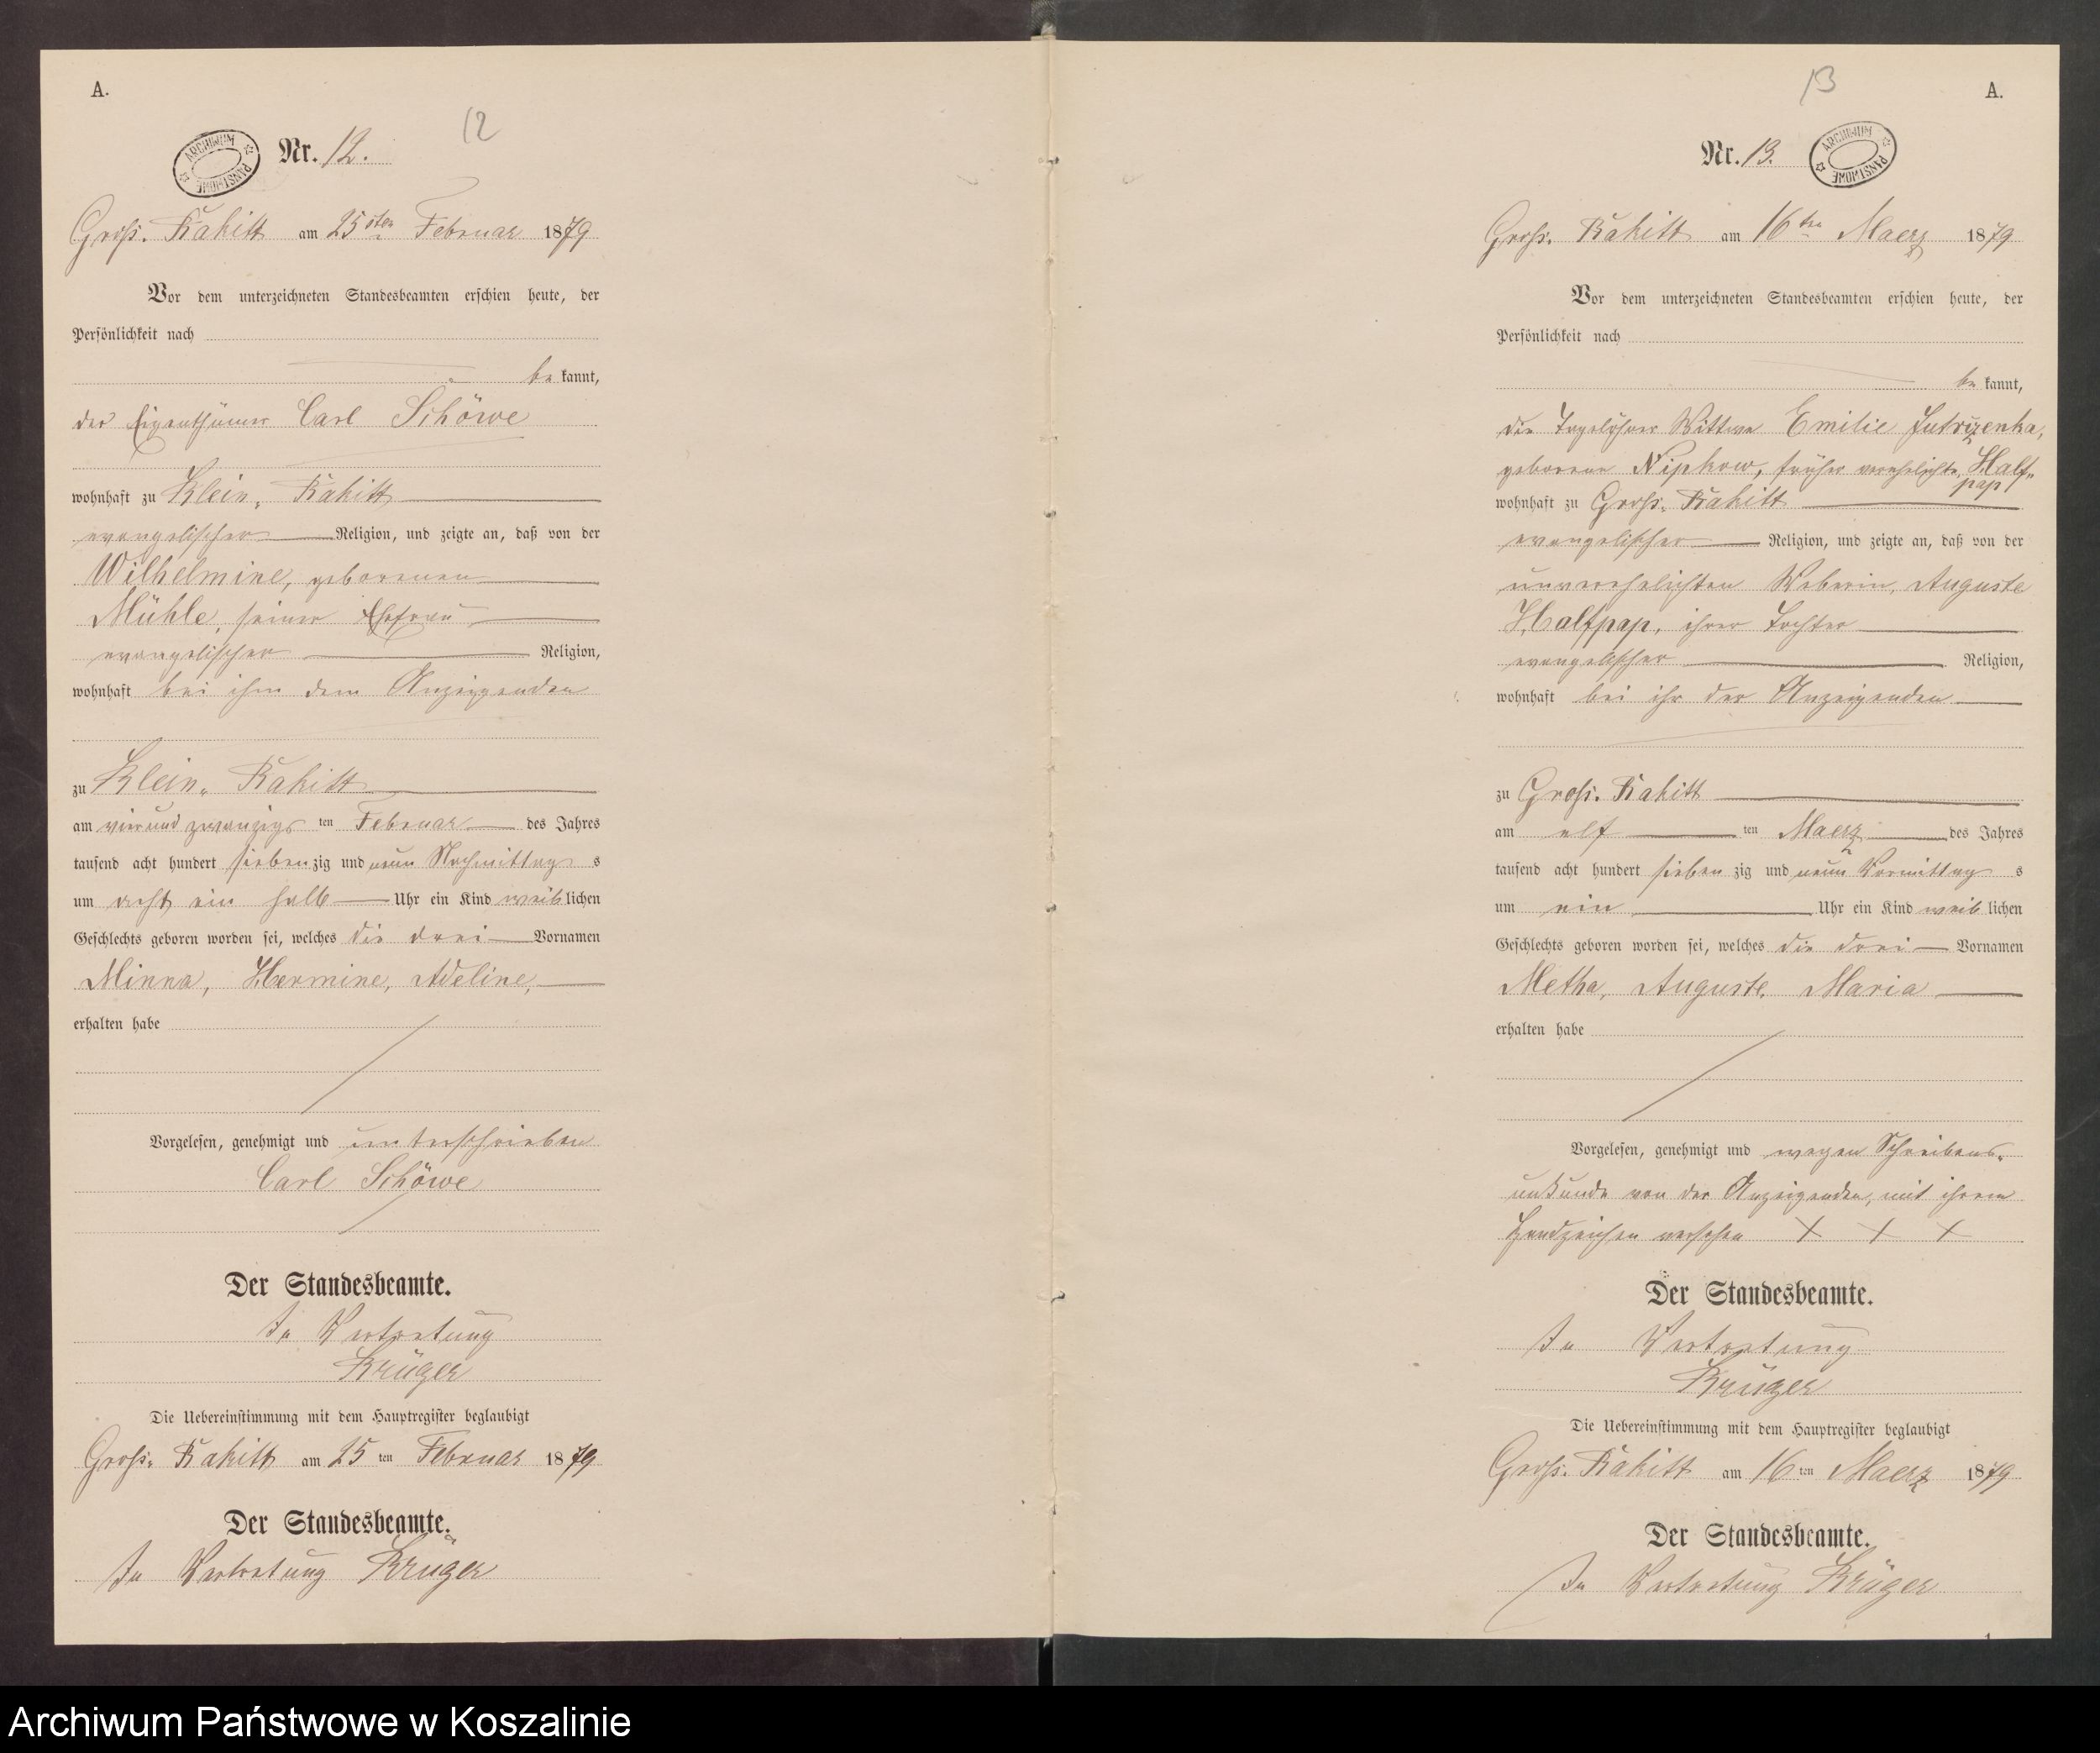 A.
12
ARCHIWUM PAŃSTWOWE
Nr. 12.
Groß-Rakitt am 25sten Februar 1879
Vor dem unterzeichneten Standesbeamten erschien heute, der
Persönlichkeit nach
be kannt,
der Eigenthümer Carl Schöwe
wohnhaft zu Klein-Rakitt
evangelischer Religion, und zeigte an, daß von der
Wilhelmine, geborenen
Mühle, seiner Ehefrau
evangelischer Religion,
wohnhaft bei ihm dem Anzeigenden
zu Klein-Rakitt
am vierundzwanzigs ten Februar des Jahres
tausend acht hundert siebenzig und neun Nachmittag s
um acht ein halb Uhr ein Kind weiblichen
Geschlechts geboren worden sei, welches die drei Vornamen
Minna, Hermine, Adeline,
erhalten habe
Vorgelesen, genehmigt und unterschrieben
Carl Schöwe
Der Standesbeamte.
In Vertretung
Krüger
Die Uebereinstimmung mit dem Hauptregister beglaubigt
Groß-Rakitt am 25 ten Februar 1879
Der Standesbeamte.
In Vertretung Krüger
13
A.
Nr. 13.
ARCHIWUM PAŃSTWOWE
Groß-Rakitt am 16ten Maerz 1879
Vor dem unterzeichneten Standesbeamten erschien heute, der
Persönlichkeit nach
be kannt,
die Tagelöhner Wittwe Emilie Jutrzenka,
geborene Nipkow, früher verehelichte Half-
pap
wohnhaft zu Groß-Rakitt
evangelischer Religion, und zeigte an, daß von der
unverehelichten Weberin, Auguste
Halfpap, ihrer Tochter
evangelischer Religion,
wohnhaft bei ihr der Anzeigenden
zu Groß-Rakitt
am elf ten Maerz des Jahres
tausend acht hundert siebenzig und neun Vormittag s
um ein Uhr ein Kind weiblichen
Geschlechts geboren worden sei, welches die drei Vornamen
Metha, Auguste, Maria
erhalten habe
Vorgelesen, genehmigt und wegen Schreibens-
unkunde von der Anzeigenden, mit ihrem
Handzeichen versehen X X X
Der Standesbeamte.
In Vertretung
Krüger
Die Uebereinstimmung mit dem Hauptregister beglaubigt
Groß-Rakitt am 16 ten Maerz 1879
Der Standesbeamte.
In Vertretung Krüger
Archiwum Państwowe w Koszalinie